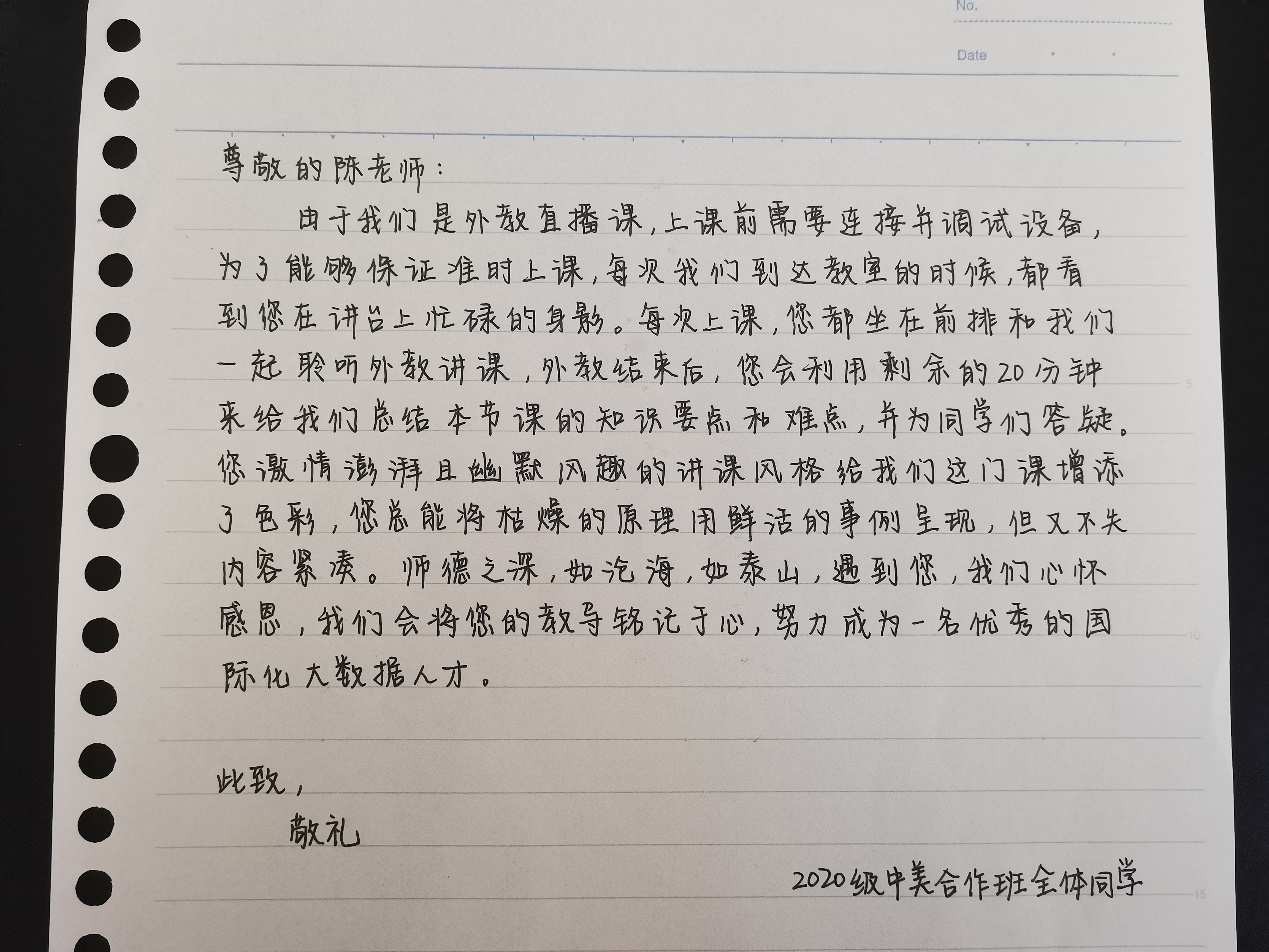 No.
Date
尊敬的陈老师：
由于我们是外教直播课，上课前需要连接并调试设备，
为了能够保证准时上课，每次我们到达教室的时候，都看
到您在讲台上忙碌的身影。每次上课，您都坐在前排和我们
一起聆听外教讲课，外教结束后，您会利用剩余的20分钟
来给我们总结本节课的知识要点和难点，并为同学们答疑。
您激情澎湃且幽默风趣的讲课风格给我们这门课增添
了色彩，您总能将枯燥的原理用鲜活的事例呈现，但又不失
内容紧凑。师德之深，如沧海，如泰山，遇到您，我们心怀
感恩，我们会将您的教导铭记于心，努力成为一名优秀的国
际化大数据人才。
此致，
敬礼
2020级中美合作班全体同学
5
10
15